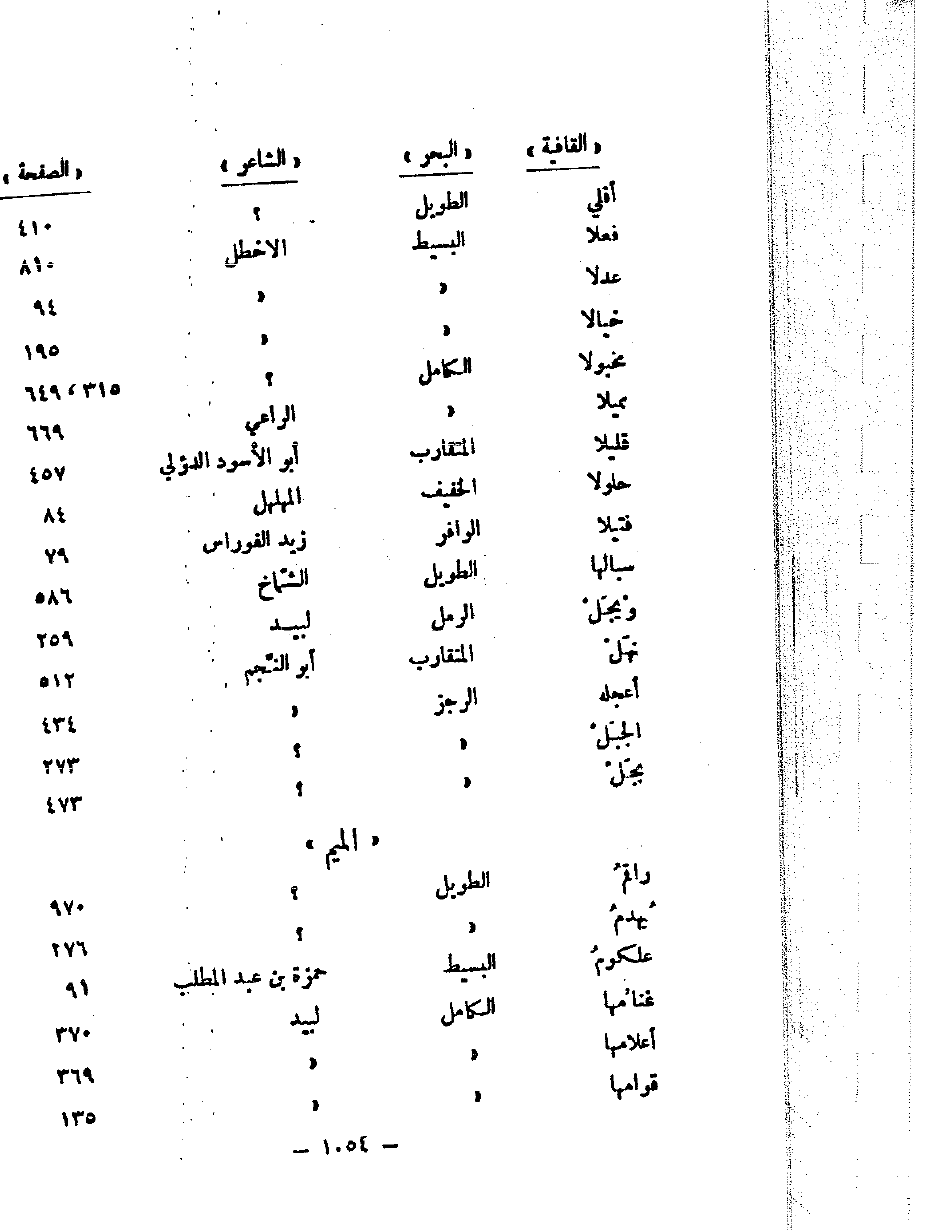 « القافية » « البحر » « الشاعر » « الصفحة »
أقلي الطويل ؟ ٤١٠
فعلا البسيط الاخطل ٨١٠
عدلا » » ٩٤
خبالا » » ١٩٥
مخبولا الكامل ؟ ٣١٥ ، ٦٤٩
مميلا » الراعي ٦٦٩
قليلا المتقارب أبو الأسود الدؤلي ٤٥٧
حلولا الخفيف المهلهل ٨٤
فتيلا الوافر زيد الفوراس ٧٩
سبالها الطويل الشمّاخ ٥٨٦
وَيجَلْ الرمل لبيد ٢٥٩
المتقارب أبو النّجم ٥١٢
أعجله الرجز » ٤٣٤
الجبَلْ » ؟ ٢٧٣
يجَلْ » ؟ ٤٧٣
« الميم »
راقمُ الطويل ؟ ٩٧٠
ُيهدمُ » ؟ ٢٧٦
علكومُ البسيط حمزة بن عبد المطلب ٩١
غنامُها الكامل لبيد ٣٧٠
أعلامها » » ٣٦٩
قوامها » » ١٣٥
– ١٠٥٤ –